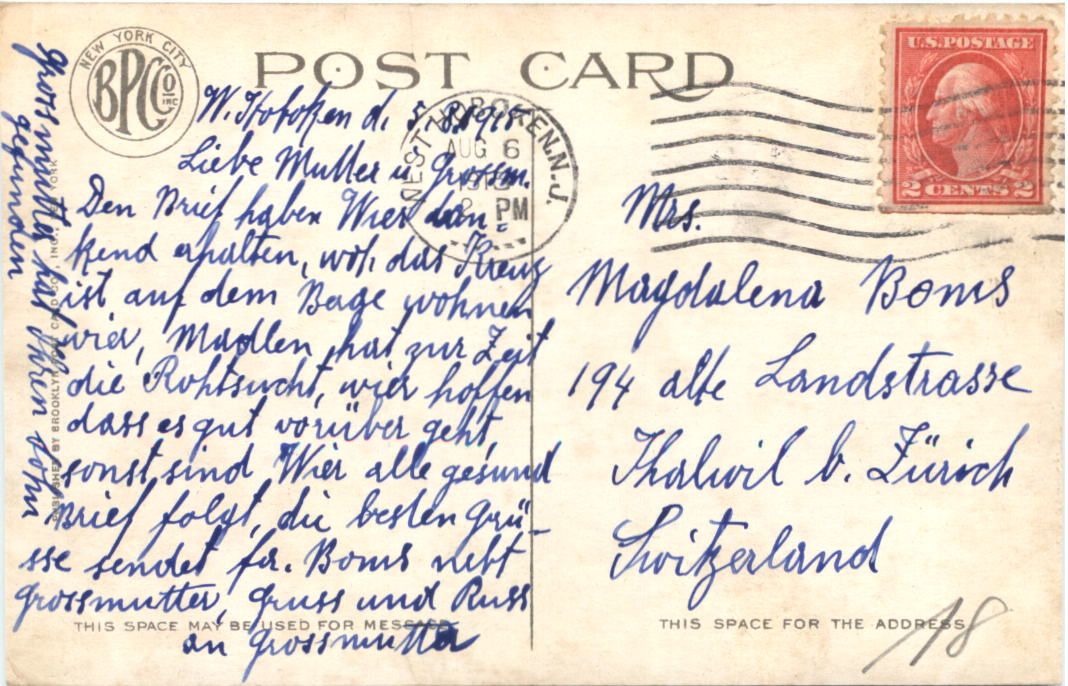 NEW YORK CITY
BPC Co INC
POST CARD
U.S. POSTAGE
2 CENTS 2
WEST HOBOKEN. N.J.
AUG 6
PM
W. Hoboken d. 5.8.
Liebe Mutter u. Grossm.
Den Brief haben Wier dan
kend erhalten, wo das Kreuz
ist auf dem Bage wohnen
wier, Madlen, hat zur Zeit
die Rohtsucht, wier hoffen
dass es gut vorüber geht,
sonst, sind Wier alle gesund
Brief folgt, die besten Grü-
sse sendet fa. Boms nebt
Grossmutter, Gruss und Kuss
an Grossmutter
Grossmutter hat Ihren sohn
gefunden
Mrs.
Magdalena Boms
194 alte Landstrasse
Thalwil b. Zürich
Switzerland
THIS SPACE MAY BE USED FOR MESSAGE
THIS SPACE FOR THE ADDRESS
18